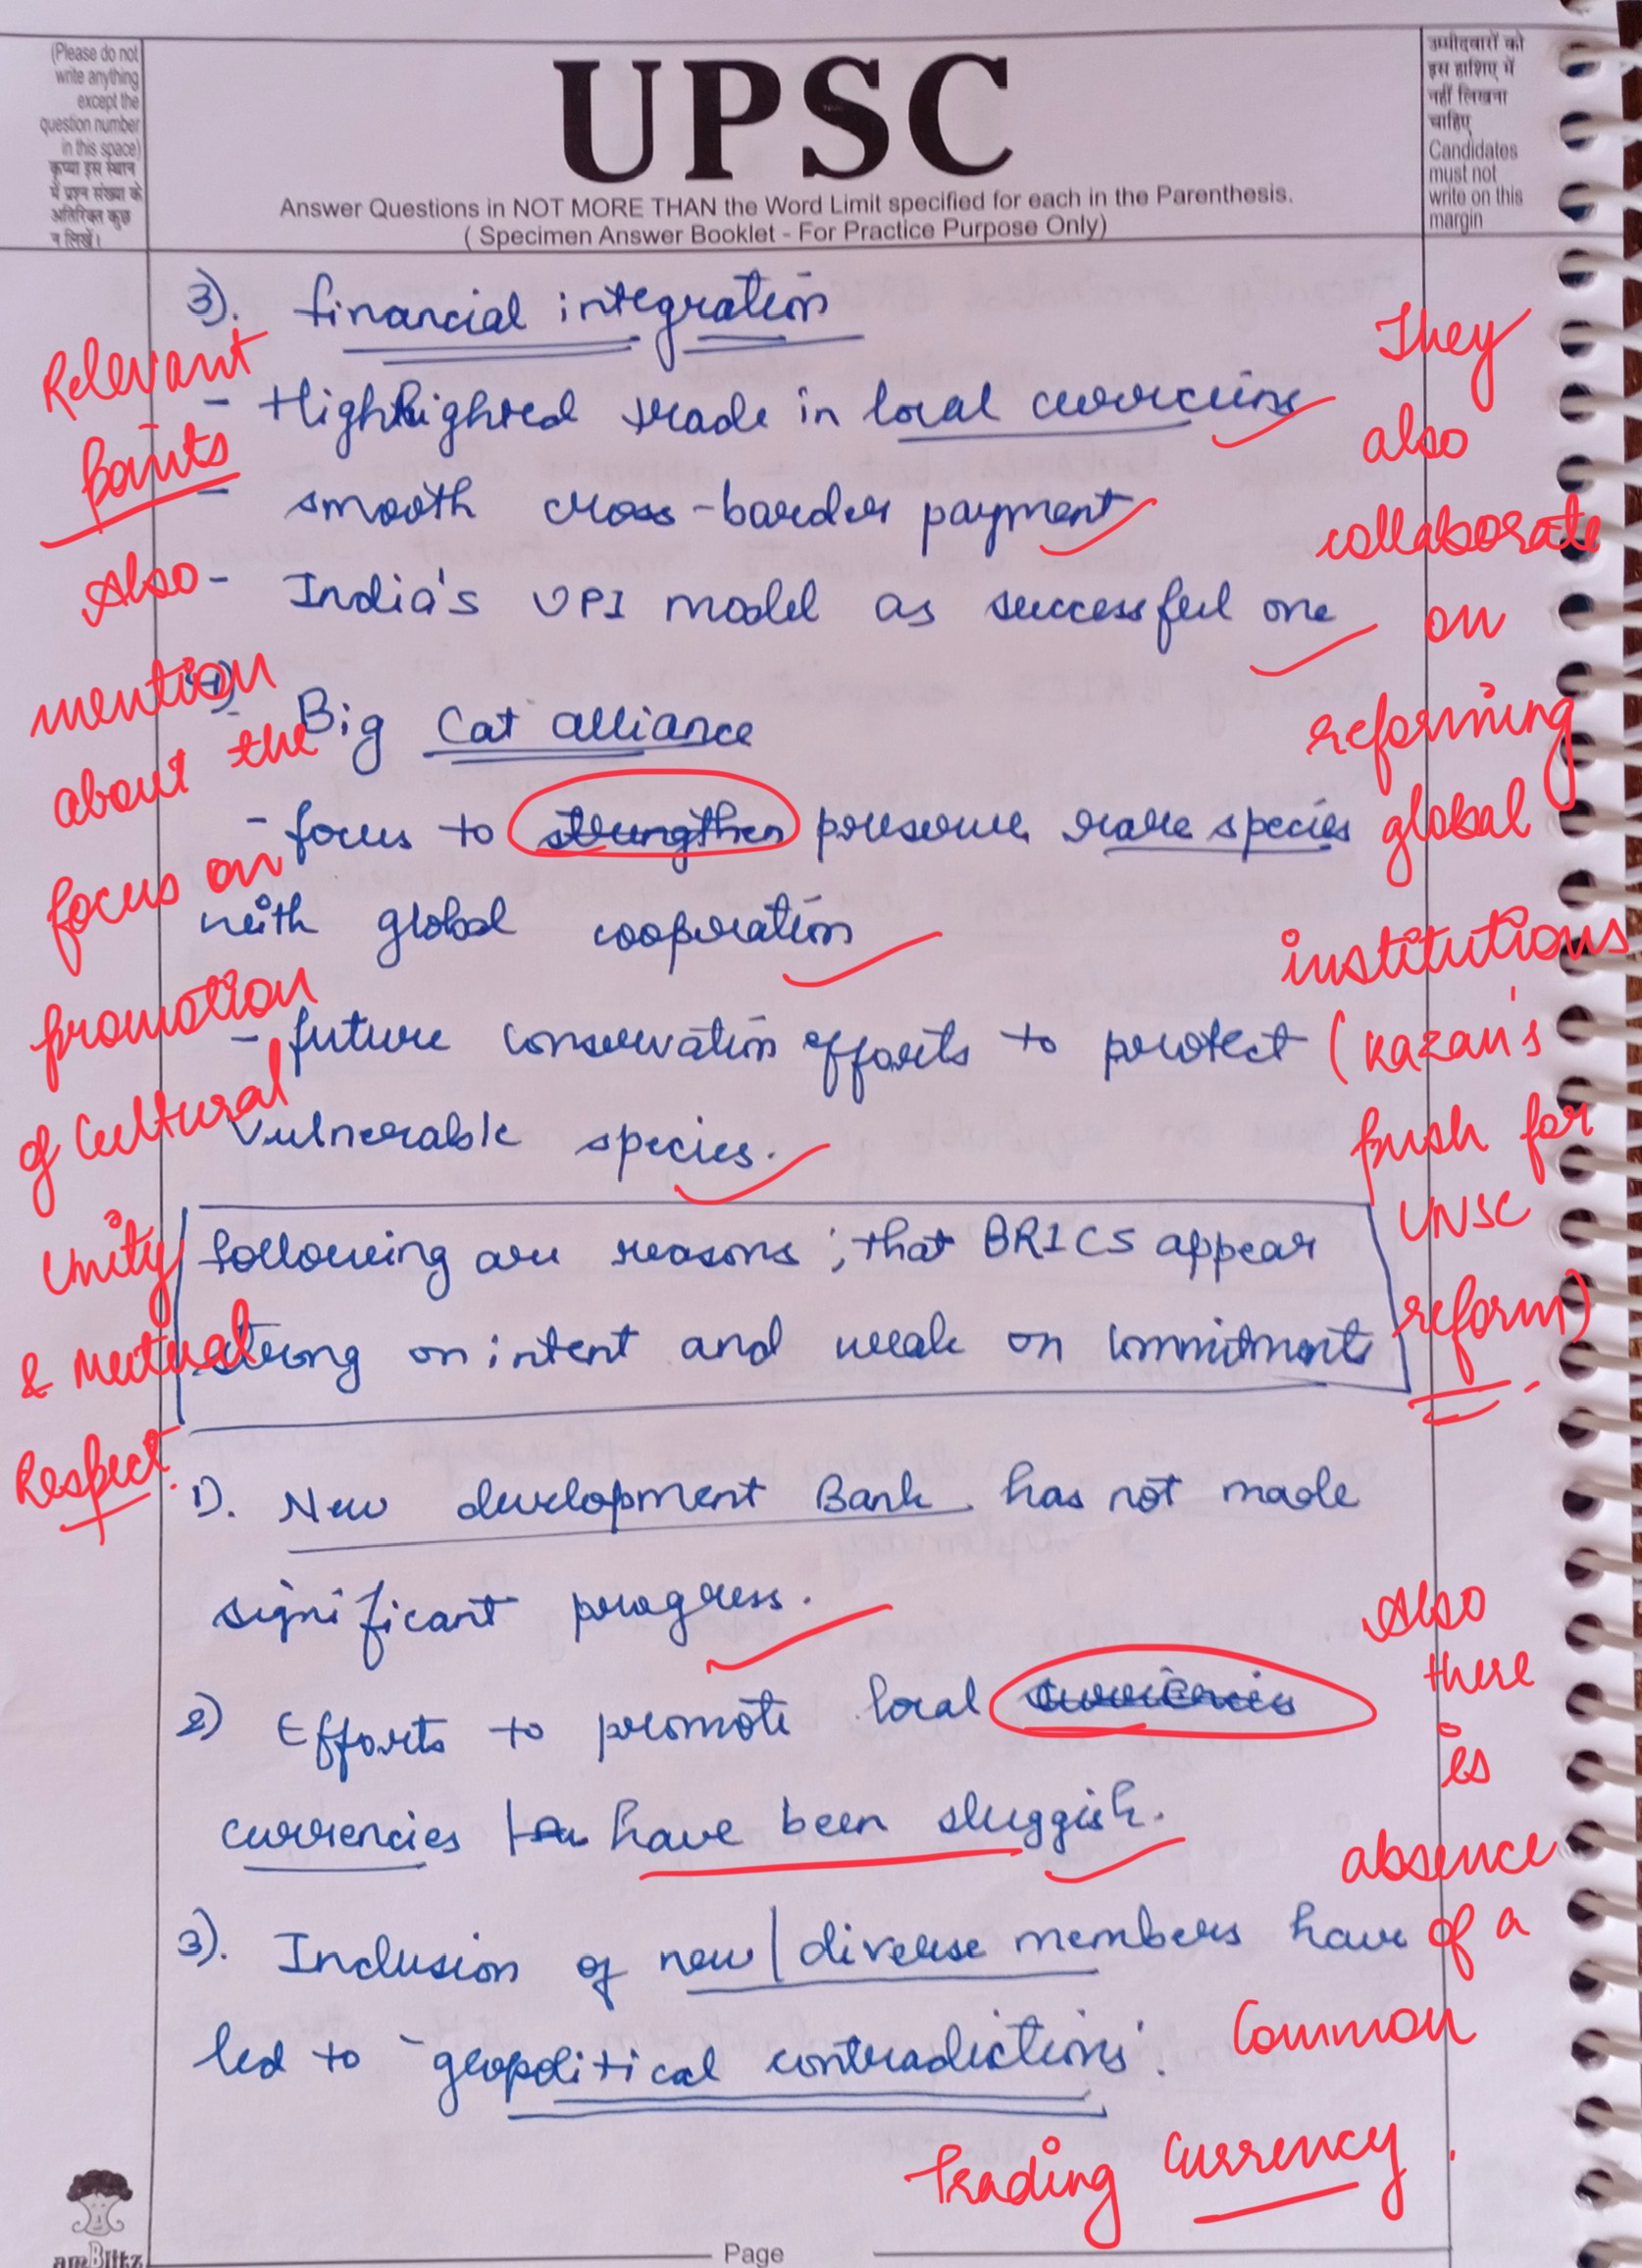 (Please do not
write anything
except the
question number
in this space)
कृप्या इस स्थान
में प्रश्न संख्या के
अतिरिक्त कुछ
न लिखें।
UPSC
Answer Questions in NOT MORE THAN the Word Limit specified for each in the Parenthesis.
( Specimen Answer Booklet - For Practice Purpose Only)
उम्मीदवारों को
इस हाशिए में
नहीं लिखना
चाहिए
Candidates
must not
write on this
margin
3). financial integration
- Highlighted trade in local currencies
- smooth cross-border payment
- India's UPI model as successful one
4). Big Cat alliance
- focus to strengthen preserve rare species
with global cooperation
- future conservation efforts to protect
vulnerable species.
following are reasons ; that BRICS appear
strong on intent and weak on commitments
1). New development Bank has not made
significant progress.
2) Efforts to promote local currencies
currencies have been sluggish.
3). Inclusion of new / diverse members have
led to 'geopolitical contradictions'.
Relevant
Points
Also
mention
about the
focus on
promotion
of Cultural
Unity
& Mutual
Respect.
They
also
collaborate
on
reforming
global
institutions
(Kazan's
push for
UNSC
reform)
Also
there
is
absence
of a
Common
trading currency.
Page